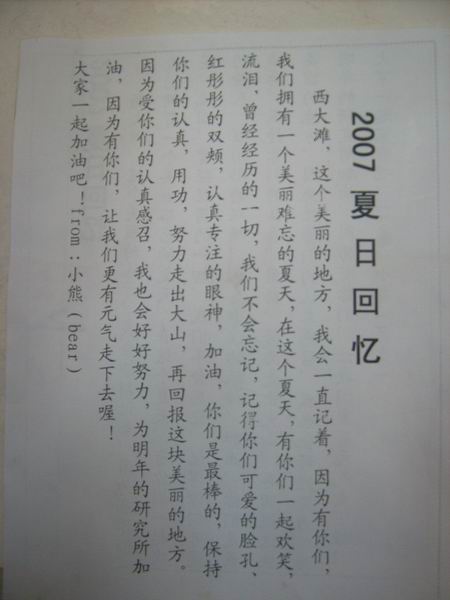 2007 夏日回忆
西大滩，这个美丽的地方，我会一直记着，因为有你们，
我们拥有一个美丽难忘的夏天，在这个夏天，有你们一起欢笑，
流泪，曾经经历的一切，我们不会忘记，记得你们可爱的脸孔、
红彤彤的双颊，认真专注的眼神，加油，你们是最棒的，保持
你们的认真，用功，努力走出大山，再回报这块美丽的地方。
因为受你们的认真感召，我也会好好努力，为明年的研究所加
油，因为有你们，让我们更有元气走下去喔！
大家一起加油吧！from：小熊（bear）